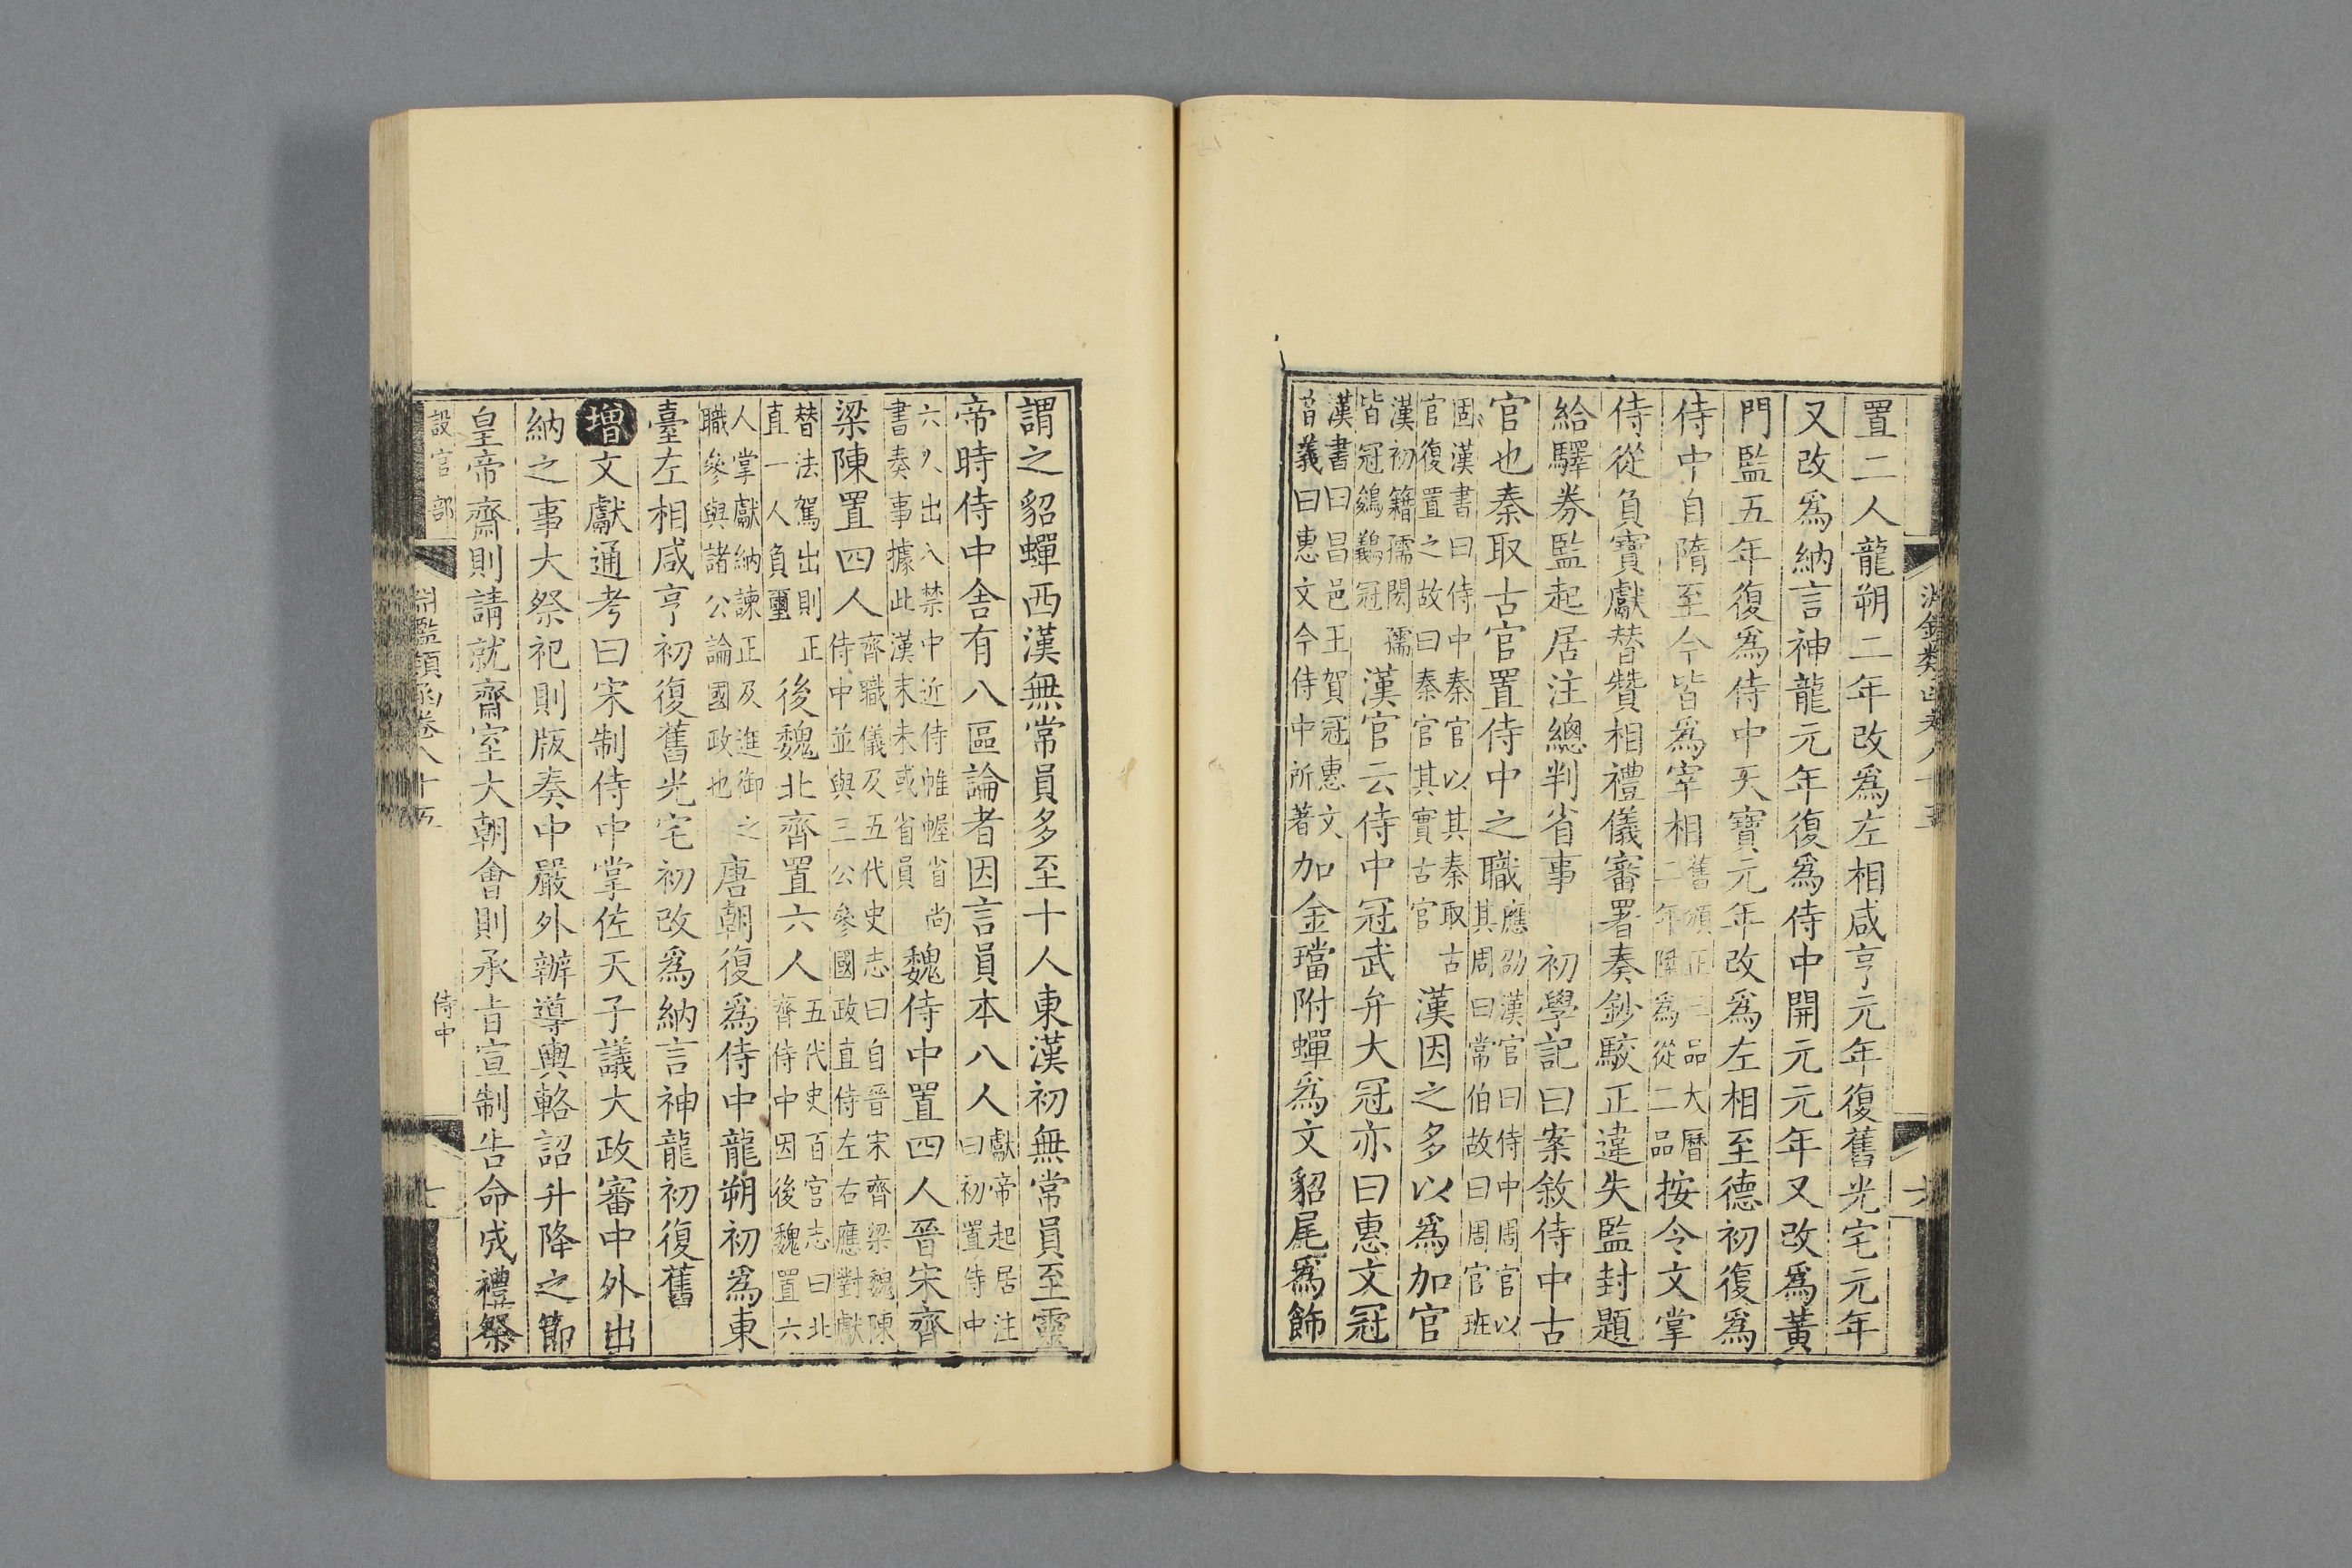 置二人龍朔二年改爲左相咸亨元年復舊光宅元年
又改爲納言神龍元年復爲侍中開元元年又改爲黃
門監五年復爲侍中天寶元年改爲左相至德初復爲
侍中自隋至今皆爲宰相舊班正三品大曆二年陞爲從二品按令文掌
侍從負寶獻替贊相禮儀審署奏鈔駮正違失監封題
給驛券監起居注總判省事 初學記曰案敘侍中古
官也秦取古官置侍中之職應劭漢官曰侍中周官以其周曰常伯故曰周官班
固漢書曰侍中秦官以其秦取古官復置之故曰秦官其實古官漢因之多以爲加官
漢初籍孺閎孺皆冠鵕鸃冠漢官云侍中冠武弁大冠亦曰惠文冠
漢書曰昌邑王賀冠惠文音義曰惠文今侍中所著加金璫附蟬爲文貂尾爲飾
謂之貂蟬西漢無常員多至十人東漢初無常員至靈
帝時侍中舍有八區論者因言員本八人獻帝起居注曰初置侍中
六人出入禁中近侍帷幄省尚書奏事據此漢末未或省員魏侍中置四人晉宋齊
梁陳置四人齊職儀及五代史志曰自晉宋齊梁魏陳侍中並與三公參國政直侍左右應對獻
替法駕出則正直一人負璽後魏北齊置六人五代史百官志曰北齊侍中因後魏置六
人掌獻納諫正及進御之職參與諸公論國政也唐朝復爲侍中龍朔初爲東
臺左相咸亨初復舊光宅初改爲納言神龍初復舊
增文獻通考曰宋制侍中掌佐天子議大政審中外出
納之事大祭祀則版奏中嚴外辦導輿輅詔升降之節
皇帝齋則請就齋室大朝會則承旨宣制告命成禮祭
設官部 侍中
淵鑑類函卷八十五